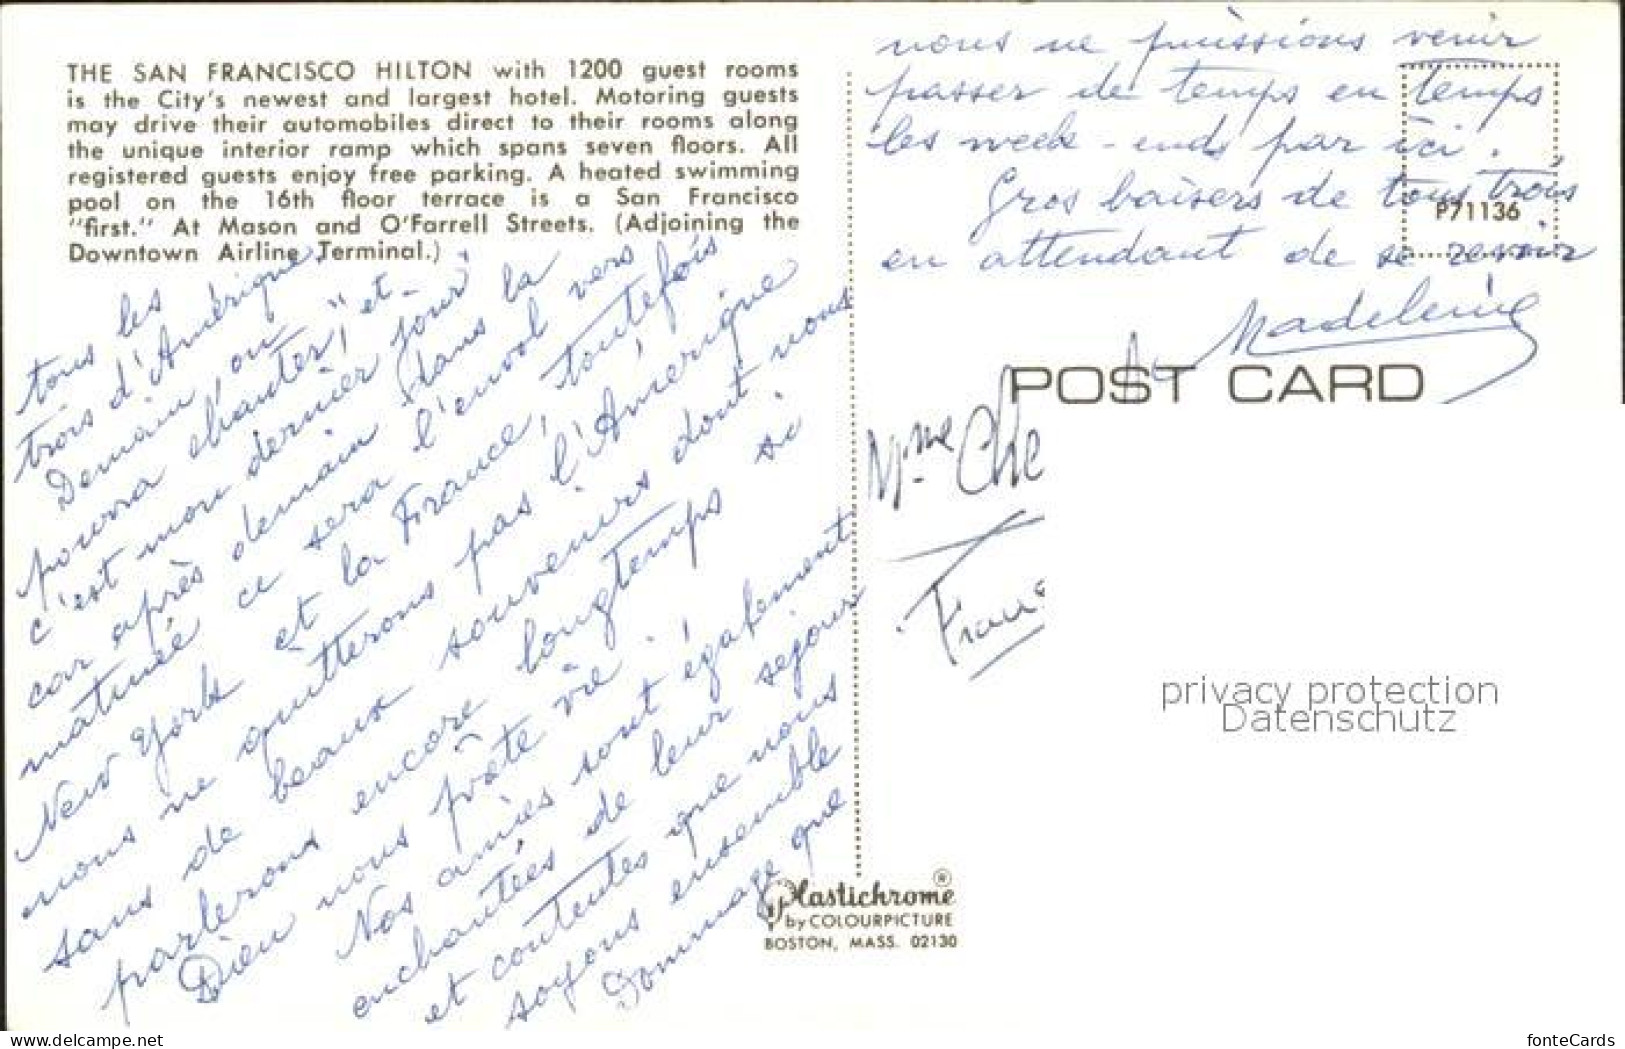 THE SAN FRANCISCO HILTON with 1200 guest rooms
is the City's newest and largest hotel. Motoring guests
may drive their automobiles direct to their rooms along
the unique interior ramp which spans seven floors. All
registered guests enjoy free parking. A heated swimming
pool on the 16th floor terrace is a San Francisco
"first." At Mason and O'Farrell Streets. (Adjoining the
Downtown Airline Terminal.)
tous les
trois d'Amérique.
Demain, on
pourra chanter, " et
c'est mon dernier jour"
car après demain dans la
matinée ce sera l'envol vers
New York et la France, toutefois
nous ne quitterons pas l'Amérique
sans de beaux souvenirs dont nous
parlerons encore longtemps si
Dieu nous prête vie.
Nos amies sont également
enchantées de leur sejour
et contentes que nous
soyons ensemble
Dommage que
nous ne puissions venir
passer de temps en temps
les week-ends par ici.
Gros baisers de tous trois
en attendant de se revoir
Madeleine
P71136
POST CARD
Mme Che
Fran
Plastichrome ®
by COLOURPICTURE
BOSTON, MASS. 02130
privacy protection
Datenschutz
www.delcampe.net
fonteCards